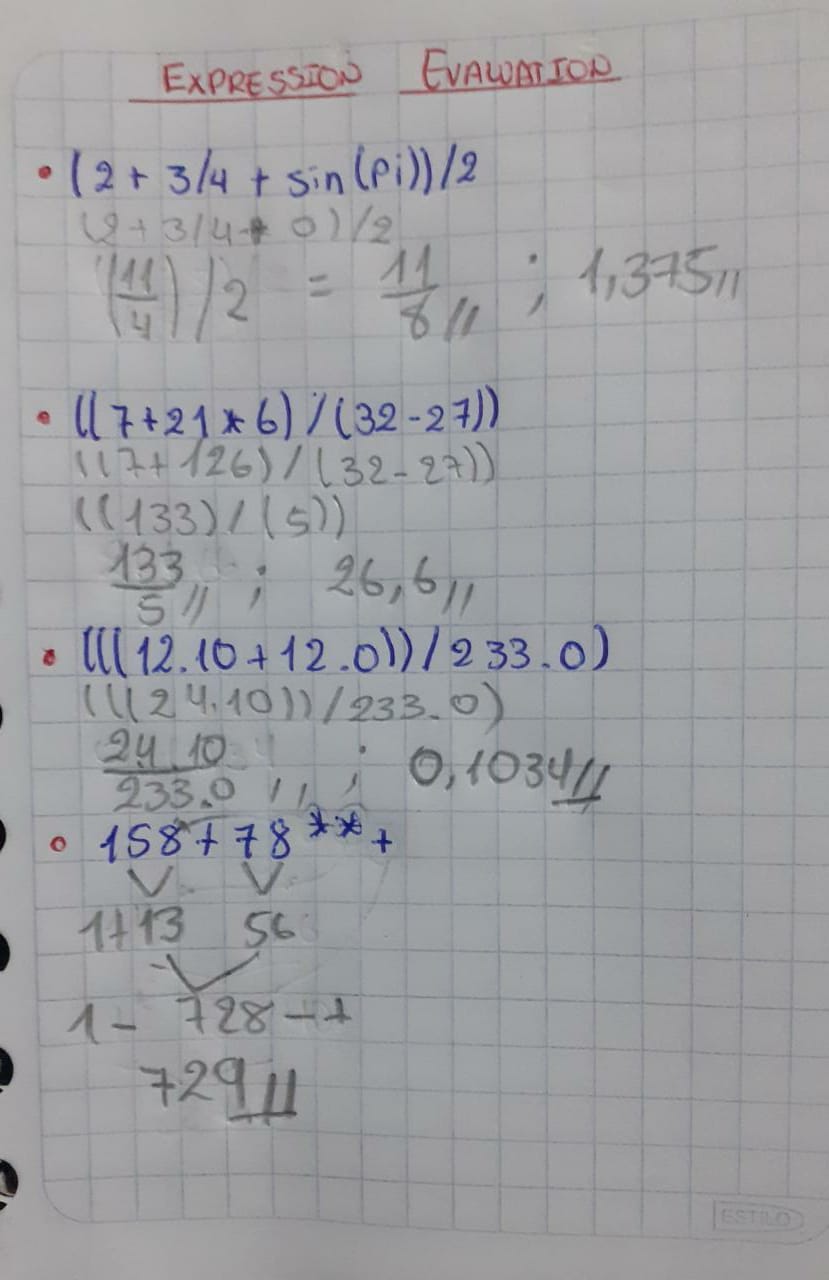 EXPRESSION EVALUATION
• (2 + 3/4 + sin(pi))/2
(2+3/4+0)/2
(11/4)/2 = 11/8 // ; 1,375 //
• ((7+21*6)/(32-27))
((7+126)/(32-27))
((133)/(5))
133/5 // ; 26,6 //
• (((12.10+12.0))/233.0)
(((24.10))/233.0)
24.10/233.0 ,, ; 0,1034 //
• 158+78**+
1+13 56
1- 728-+
729 //
ESTILO